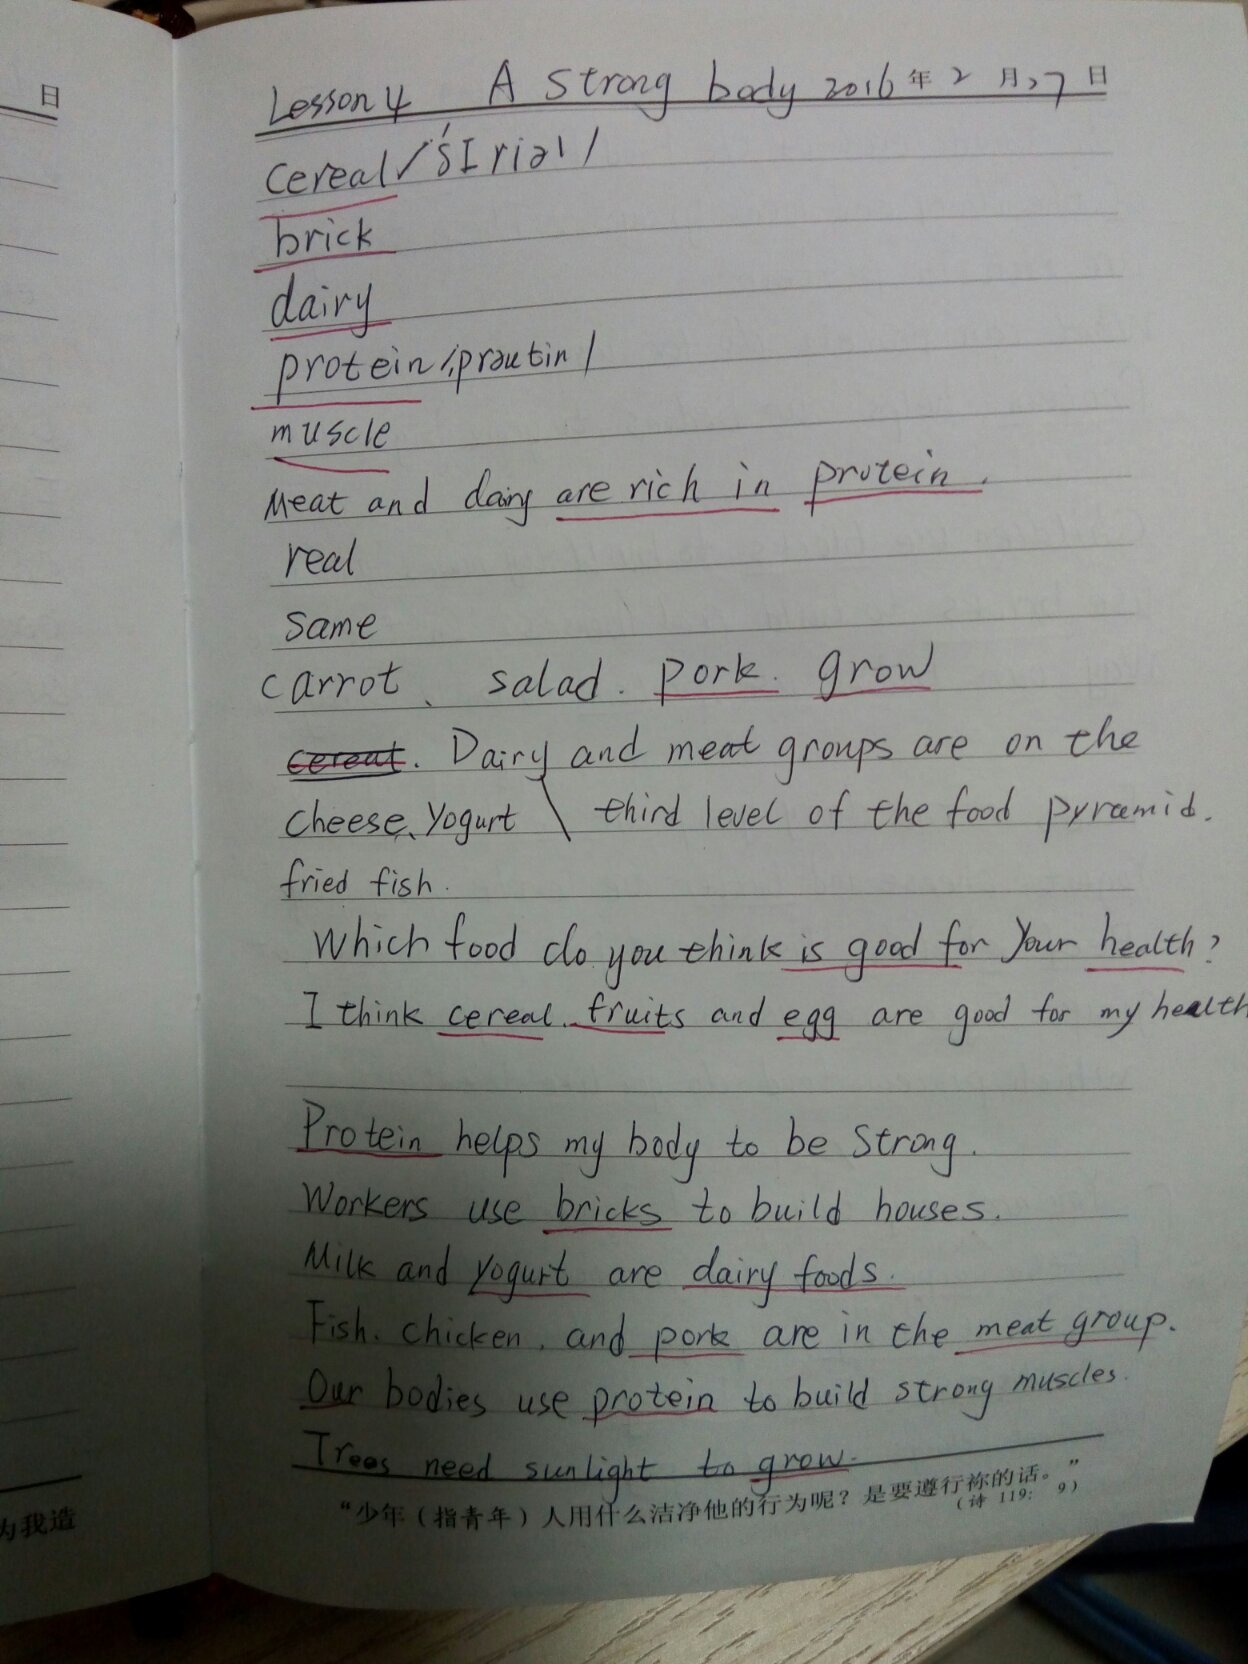 日
Lesson 4 A strong body 2016年2月27日
cereal /'sɪriəl/
brick
dairy
protein /'prəutin/
muscle
Meat and dairy are rich in protein.
real
same
carrot、 salad. pork. grow
cereal. Dairy and meat groups are on the
cheese、Yogurt \ third level of the food pyramid.
fried fish.
Which food do you think is good for your health?
I think cereal. fruits and egg are good for my health
Protein helps my body to be strong.
Workers use bricks to build houses.
Milk and yogurt are dairy foods.
Fish. chicken. and pork are in the meat group.
Our bodies use protein to build strong muscles.
Trees need sunlight to grow.
“少年（指青年）人用什么洁净他的行为呢？是要遵行祢的话。”
（诗 119：9）
为我造